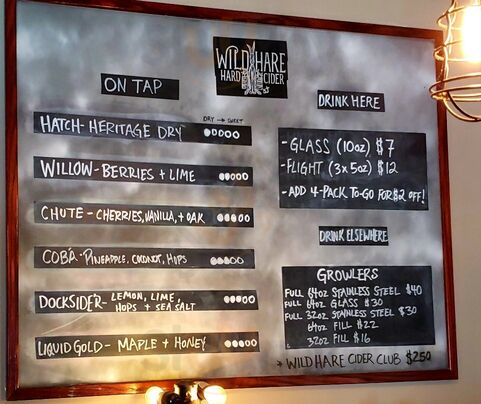 WILD HARE
HARD CIDER
ON TAP
DRY → SWEET
HATCH-HERITAGE DRY
WILLOW-BERRIES + LIME
CHUTE-CHERRIES, VANILLA, + OAK
COBÁ-PINEAPPLE, COCONUT, HOPS
DOCKSIDER-LEMON, LIME,
HOPS + SEA SALT
LIQUID GOLD-MAPLE + HONEY
DRINK HERE
-GLASS (10oz) $7
-FLIGHT (3x5oz) $12
-ADD 4-PACK TO-GO FOR $2 OFF!
DRINK ELSEWHERE
GROWLERS
FULL 64oz STAINLESS STEEL $40
FULL 64oz GLASS $30
FULL 32oz STAINLESS STEEL $30
64oz FILL $22
32oz FILL $16
→ WILD HARE CIDER CLUB $250